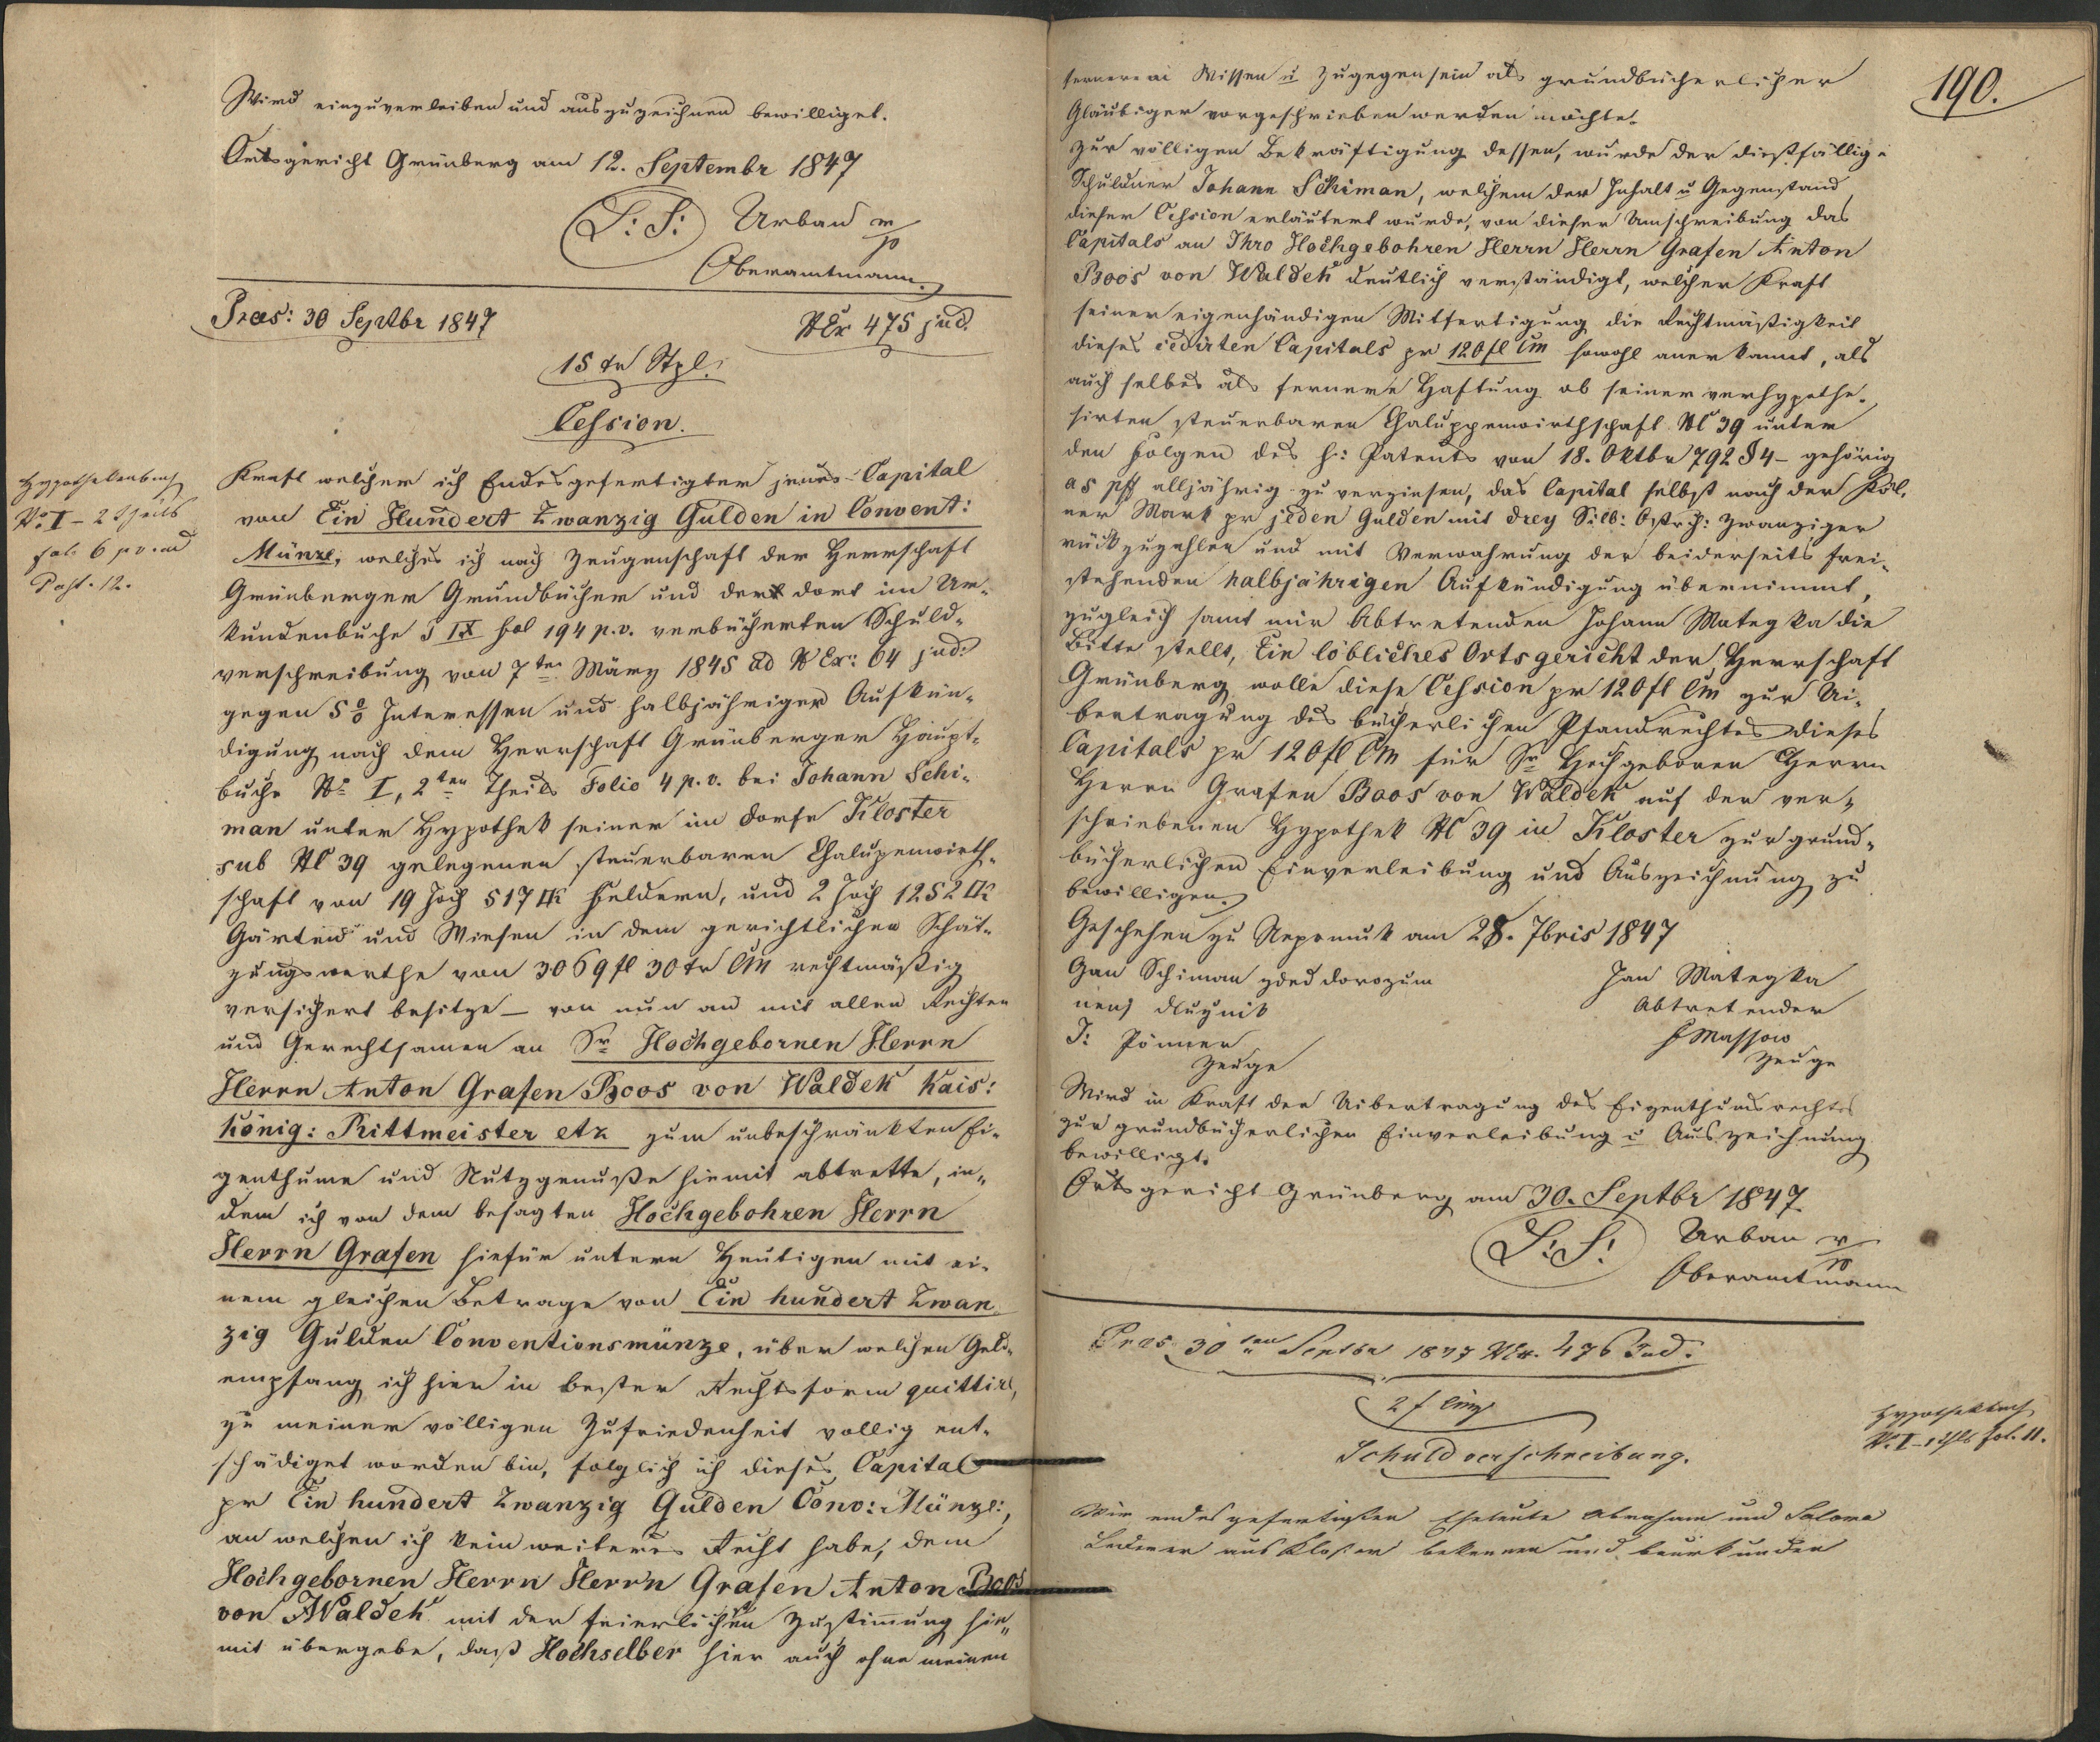 Wird einzuverleiben und auszuzeichnen bewilliget.
Ortsgericht Grünberg am 12. Septembr 1847
L: S: Urban m/p
Oberamtmann.
Præs: 30 Septbr 1847
NEx 475 jud.
15 xr Stpl.
Cession.
Hypothekenbuch
No I - 2 Theils
fol. 6 p.v. und
Post. 12.
Kraft welcher ich Endesgefertigter jenes Capital
von Ein Hundert Zwanzig Gulden in Convent:
Münze, welches ich nach Zeugenschaft der Herrschaft
Grünberger Grundbücher und der dort im Ur-
kundenbuche T IX fol 194 p.v. verbücherten Schuld-
verschreibung von 7ten März 1845 ad NEx: 64 jud:
gegen 5 % Interessen und halbjähriger Aufkün-
digung nach dem Herrschaft Grünberger Haupt-
buche No I, 2ten Theils Folio 4 p.v. bei Johann Schi-
man unter Hypothek seiner im Dorfe Kloster
sub NC 39 gelegenen steuerbaren Chalupenwirth-
schaft von 19 Joch 517 □K Feldern, und 2 Joch 1252 □K
Gärten und Wiesen in dem gerichtlichen Schät-
zungswerthe von 3069 fl 30 xr CM rechtmäßig
versichert besitze — von nun an mit allen Rechten
und Gerechtsamen an Sr Hochgebornen Herrn
Herrn Anton Grafen Boos von Waldek Kais:
König: Rittmeister etz zum unbeschränkten Ei-
genthume und Nutzgenuße hiemit abtrette, in-
dem ich von dem besagten Hochgebohren Herrn
Herrn Grafen hiefür untern Heutigen mit ei-
nem gleichen Betrage von Ein hundert Zwan-
zig Gulden Conventionsmünze, über welchen Geld-
empfang ich hier in bester Rechtsform quittire,
zu meiner völligen Zufriedenheit vollig ent-
schädiget worden bin, folglich ich dieses Capital
pr Ein hundert Zwanzig Gulden Conv: Münze:,
an welchen ich kein weiteres Recht habe, dem
Hochgebornen Herrn Herrn Grafen Anton Boos
von Waldek mit der feierlichen Zustimmung hie-
mit übergebe, daß Hochselber hier auch ohne meinen
190.
fernere Wissen u Zugegensein als grundbücherlicher
Gläubiger vorgeschrieben werden möchte.
Zur völligen Bekräftigung dessen, wurde der dießfällige
Schuldner Johann Schiman, welchem der Inhalt u Gegenstand
dieser Cession erläutert wurde, von dieser Umschreibung das
Capitals an Ihro Hochgebohren Herrn Herrn Grafen Anton
Boos von Waldek deutlich verständigt, welcher Kraft
seiner eigenhändigen Mitfertigung die Rechtmäßigkeit
dieses cedirten Capitals pr 120 fl CM sowohl anerkannt, als
auch selbes als fernere Haftung ob seiner verhypothe-
sirten steuerbaren Chaluppenwirthschaft NC 39 unter
den Folgen des h: Patents von 18. Oktbr 792 § 4 - gehörig
a 5 pff alljährig zu verzinsen, das Capital selbst nach der Köl-
ner Mark pr jeden Gulden mit drey Silb: Östrch: Zwanziger
rückzuzahlen und mit Verwahrung der beiderseits frei-
stehenden halbjährigen Aufkündigung übernimmt,
zugleich samt mir Abtretenden Johann Mategka die
Bitte stellt, Ein löbliches Ortsgericht der Herrschaft
Grünberg wolle diese Cession pr 120 fl CM zur Ui-
bertragung des bücherlichen Pfandrechtes dieses
Capitals pr 120 fl CM für Sr Hochgeboren Herrn
Herrn Grafen Boos von Waldek auf der ver-
schriebenen Hypothek NC 39 in Kloster zur grund-
bücherlichen Einverleibung und Auszeichnung zu
bewilligen.
Geschehen zu Nepomuk am 28. 7bris 1847
Jan Schiman zded dorozum
nenj dluznik
Jan Mategka
Abtretender
J: Pönner
Zeuge
Massow
Zeuge
Wird in Kraft der Uibertragung des Eigenthumsrechtes
zur grundbücherlichen Einverleibung u Auszeichnung
bewilligt.
Ortsgericht Grünberg am 30. Septbr 1847
L: S: Urban m/p
Oberamtmann
Præs. 30ten Septbr 1847 NEx. 476 Jud.
Schuldverschreibung.
Hypothekbuch
No. I - 1 thls fol. 11.
Wir endesgefertigten Eheleute Abraham und Salome
Lederer aus Kloster bekennen und beurkunden